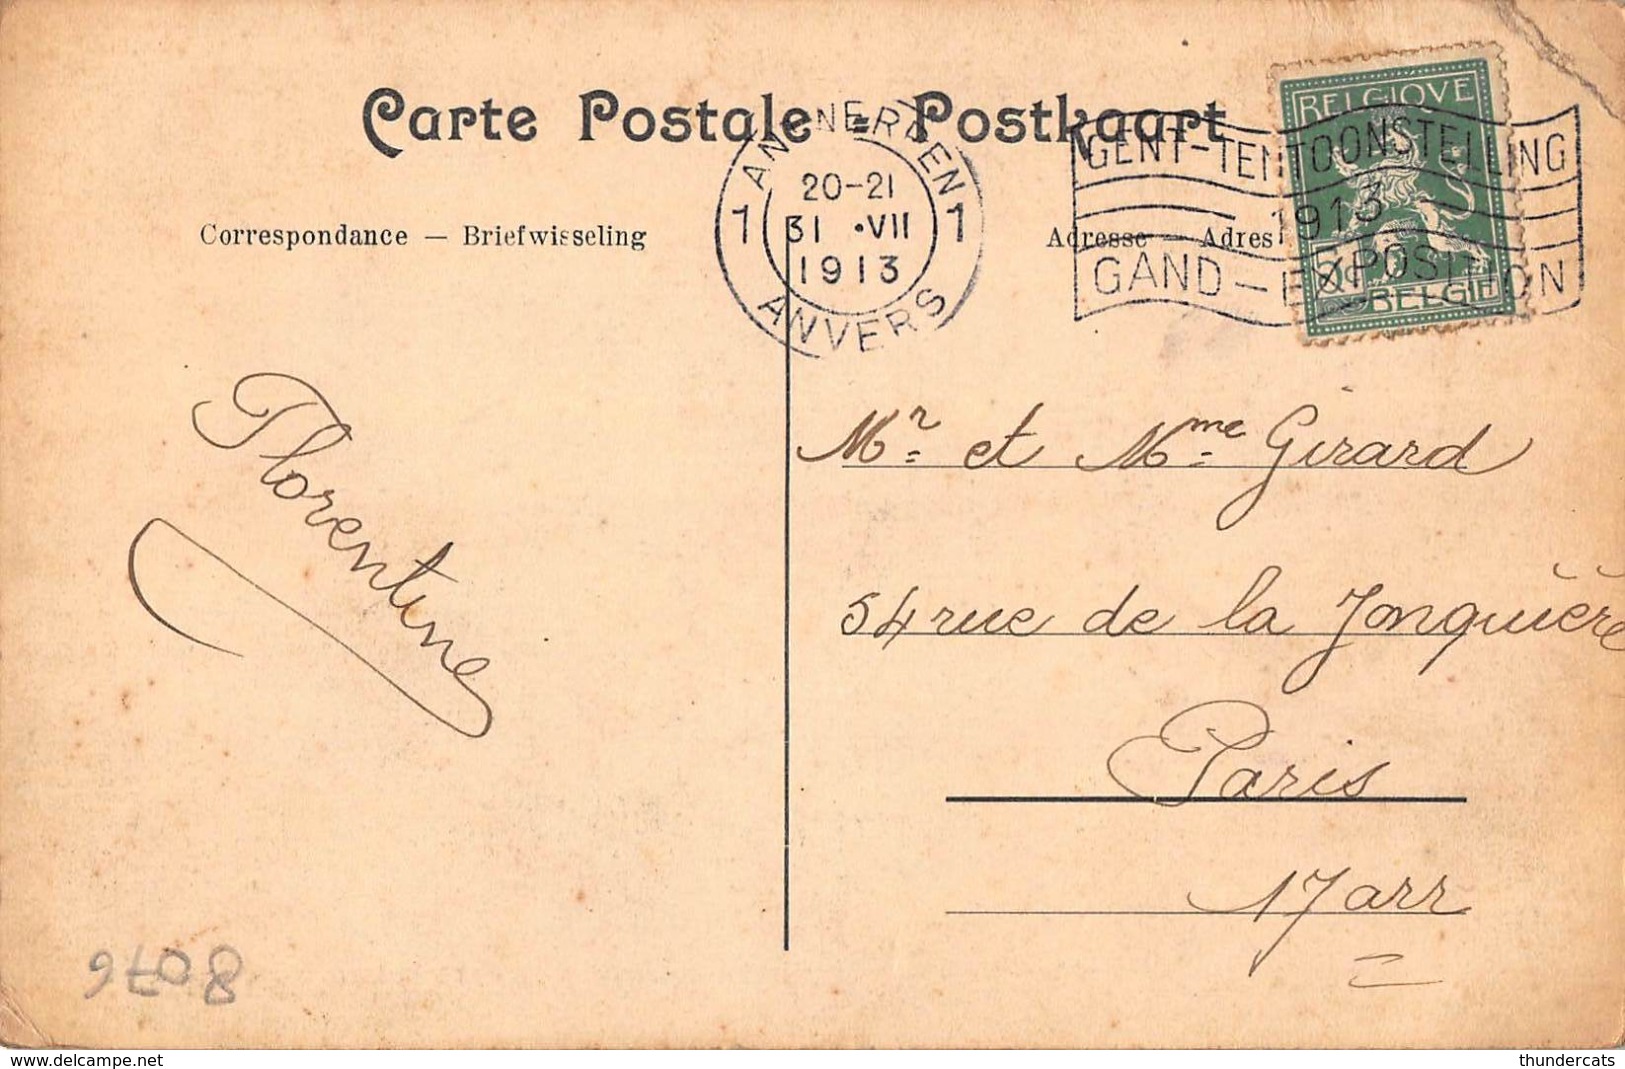 Carte Postale - Postkaart
ANTWERPEN
1 20-21 1
31 •VII
1913
ANVERS
GENT-TENTOONSTELLING
1913
GAND-EXPOSITION
BELGIQUE
5c
BELGIË
Correspondance — Briefwisseling
Adresse — Adres
Florentine
Mr et Mme Girard
54 rue de la Jonquière
Paris
17 arr
8076
www.delcampe.net
thundercats